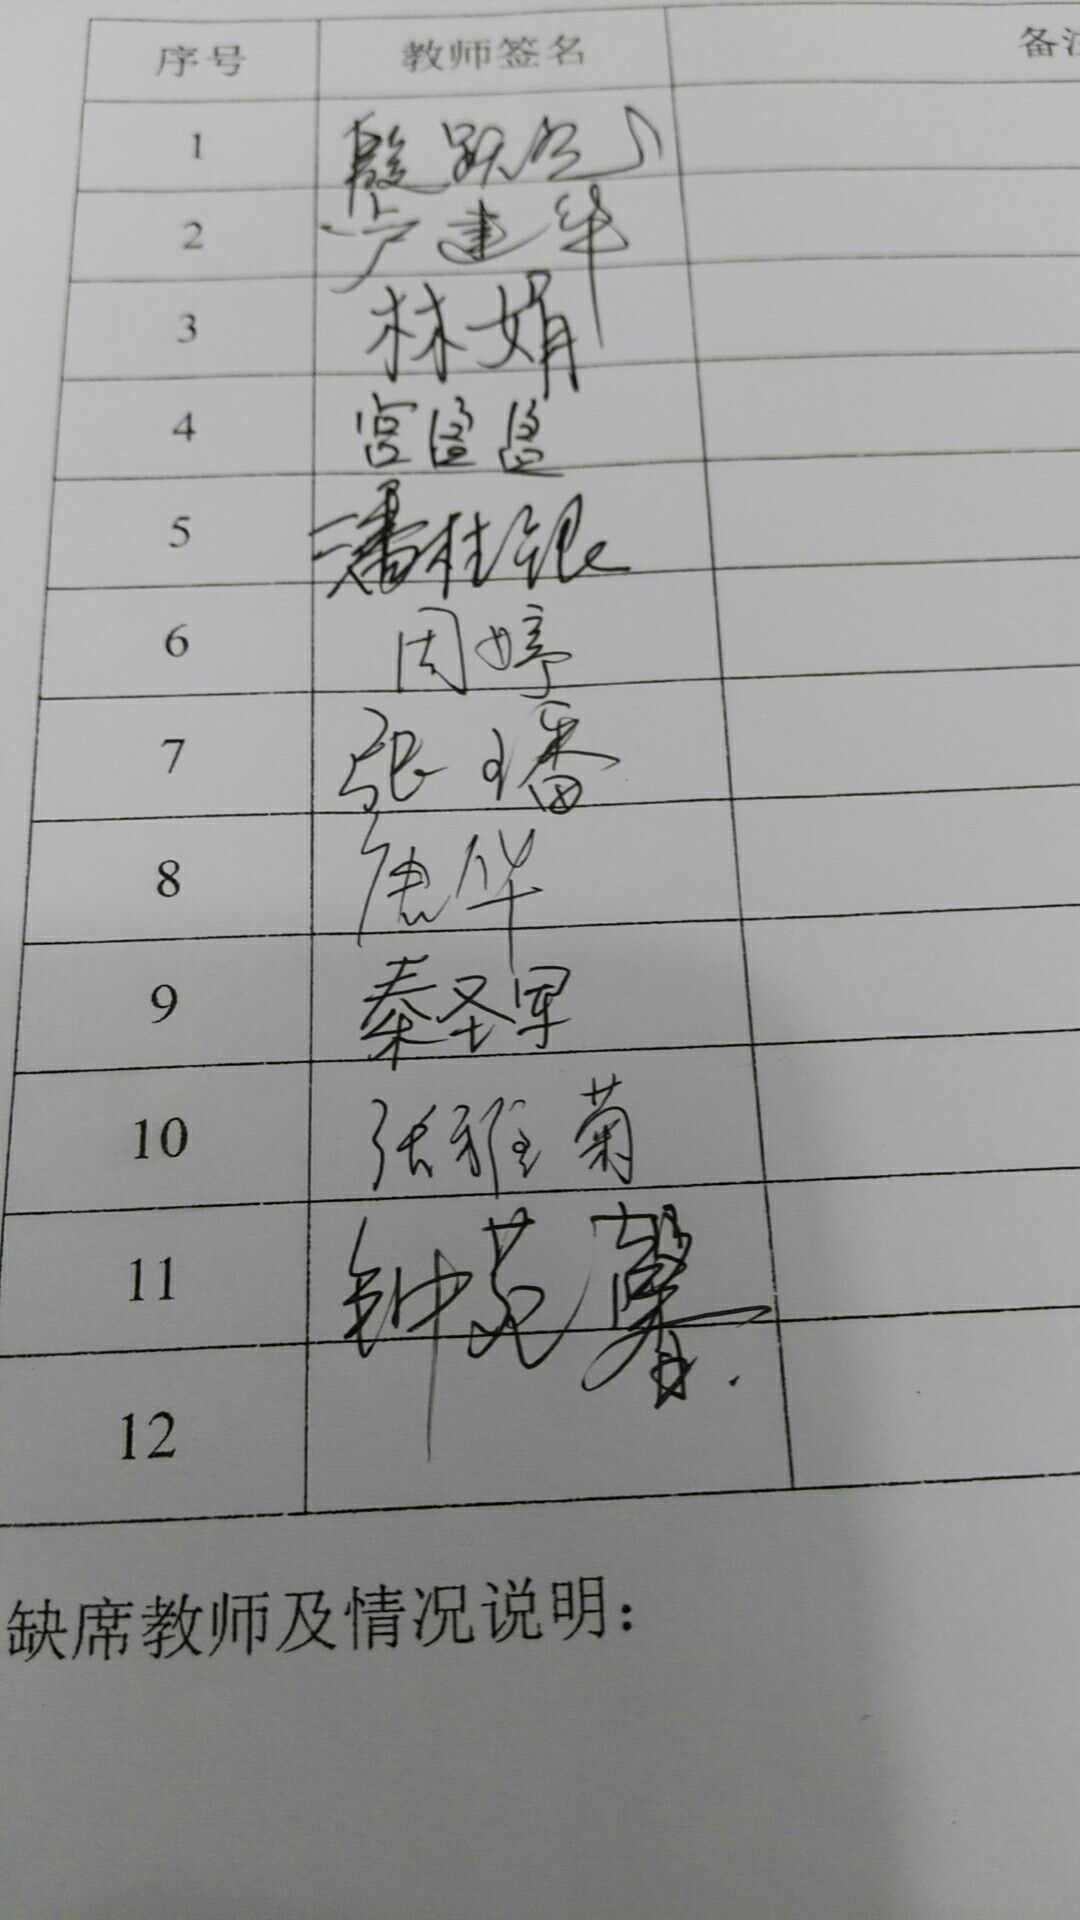 序号 教师签名 备注
1 殷跃
2 卢建华
3 林娟
4 宫
5 潘桂银
6 周婷
7 张璠
8 唐华
9 秦圣军
10 张雅菊
11 钟苑馨
12
缺席教师及情况说明：